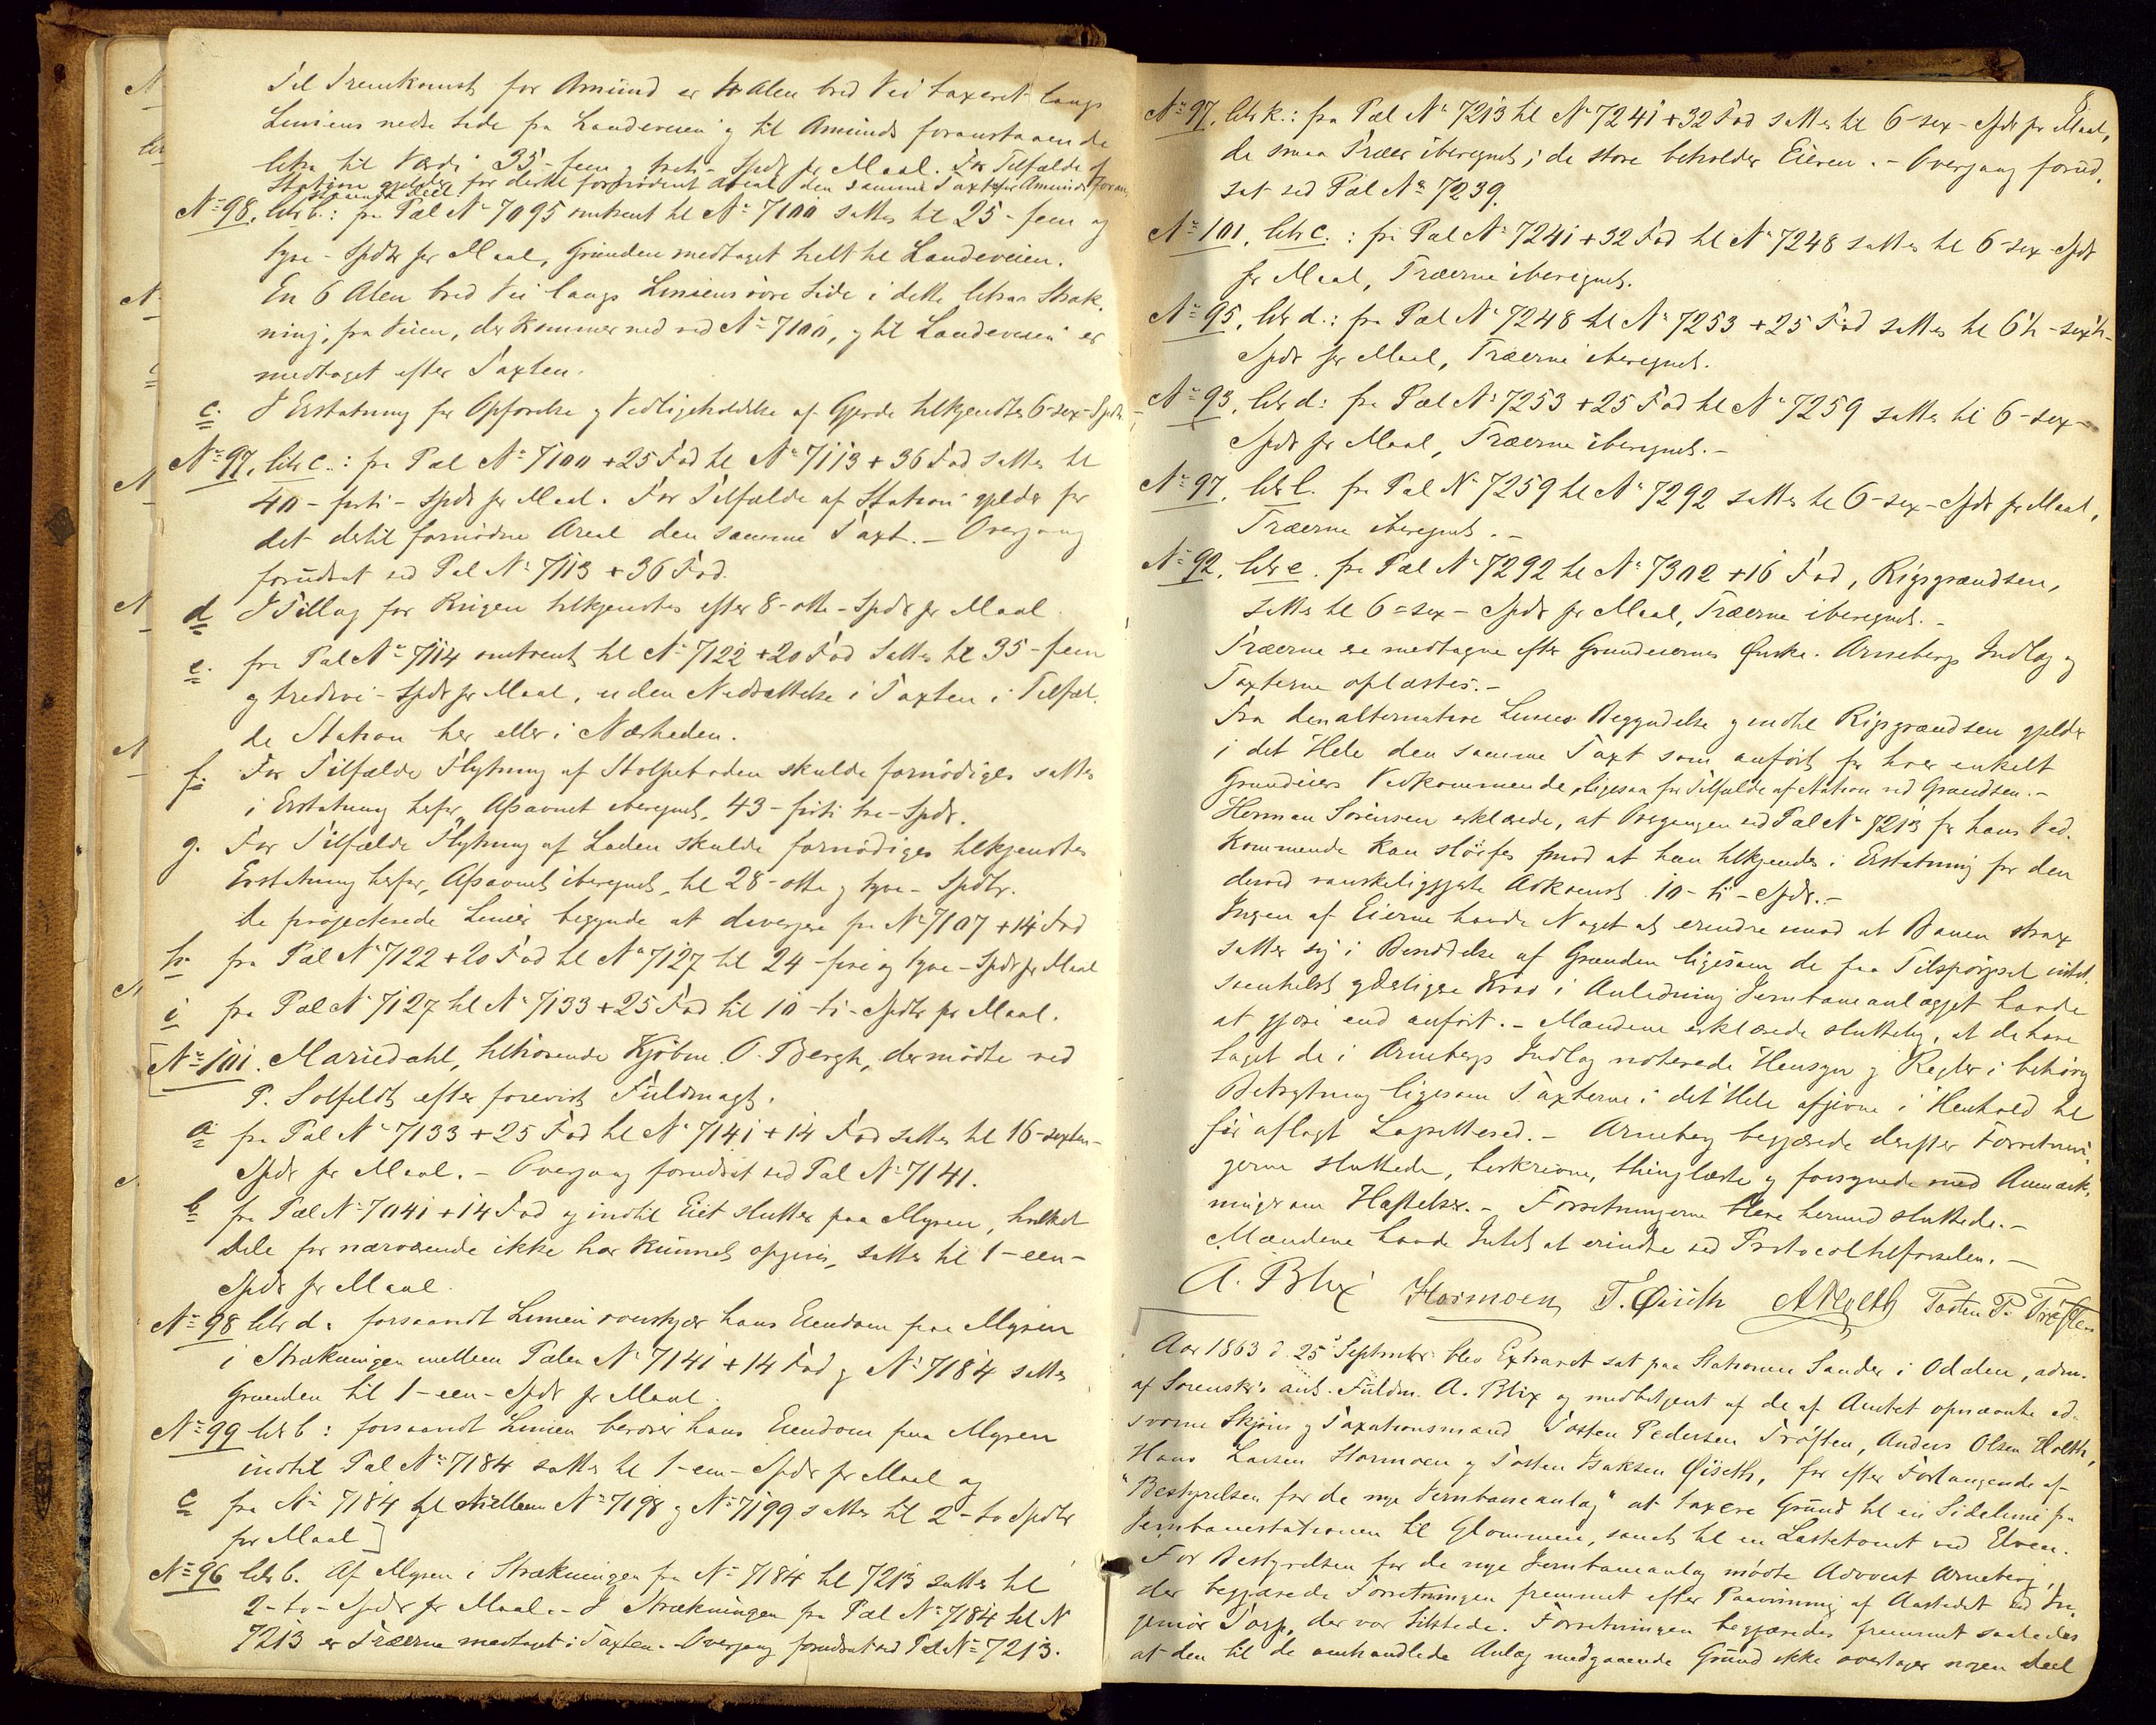 Til Fremkomst for Amund er 4 Alen bred Vei taxeret langs
Liniens nedre Side fra Landeveien og til Amunds foranstaaende
litra til Værdi 35-fem og treti- Spdr pr Maal. For Tilfælde af
Station gjelder for dertil fornødent Areal den samme Taxt efter Amunds foran
staaende Deel.
No 98, litr b.: fra Pæl No 7095 omtrent til No 7100 sættes til 25-fem og
tyve-Spdlr pr Maal, Grunden medtaget helt til Landeveien.
En 6 Alen bred Vei langs Liniens øvre Side i dette litras Stræk-
ning, fra Veien, der kommer ned ved No 7100, og til Landeveien er
medtaget efter Taxten.
c. I Erstatning for Opførelse og Vedligeholdelse af Gjerde tilkjendtes 6-sex-Spdr
No 97, litr c.: fra Pæl No 7100+25 Fod til No 7113+36 Fod sættes til
40-firti-Spdr pr Maal. For Tilfælde af Station gjelder for
det dertil fornødne Areal den samme Taxt.- Overgang
forudsat ved Pæl No 7113+36 Fod.
d I Tillæg for Krigen tilkjendtes efter 8-otte-Spdr pr Maal.
e. fra Pæl No 7114 omtrent til No 7122+20 Fod sættes til 35-fem
og tredive-Spdr pr Maal, uden Nedsættelse i Taxten i Tilfæl-
de Station her eller i Nærheden.
f. For Tilfælde Flytning af Stolpeboden skulde fornødiges sættes
i Erstatning herfor, Afsavnet iberegnet, 43-firti tre-Spdr.
g. For Tilfælde Flytning af Laden skulde fornødiges tilkjendtes
Erstatning herfor, Afsavnet iberegnet, til 28-otte og tyve-Spdlr.
De projecterede Linier begynde at divergere fra No 7107+14 Fod
h. fra Pæl No 7122+20 Fod til No 7127 til 24-fire og tyve-Spdr pr Maal
i fra Pæl No 7127 til No 7133+25 Fod til 10-ti-Spdlr pr Maal.
[No 101. Mariedahl, tilhørende Kjøbm. O. Bergh, der mødte ved
P. Solfeldt efter forevist Fuldmagt.
a fra Pæl No 7133+25 Fod til No 7141+14 Fod sættes til 16-sexten-
Spdr pr Maal.- Overgang forudsat ved Pæl No 7141.
b fra Pæl No 7041+14 Fod og indtil Eiet slutter paa Myren, hvilket
Dele for nærværende ikke har kunnet opgives, sættes til 1-een-
Spdr pr Maal.
No 98 litr d. forsaavidt Linien overskjær hans Eiendom paa Myren
i Strækningen mellem Pælen No 7141+14 Fod og No 7184 sættes
Grunden til 1-een-Spdr pr Maal.
No 99 litr b: forsaavidt Linien berører hans Eiendom paa Myren
indtil Pæl No 7184 sættes til 1-een-Spdr pr Maal og
c fra No 7184 til mellem No 7198 og No 7199 sættes til 2-to Spdlr
pr Maal]
No 96 litr b. Af Myren i Strækningen fra No 7184 til 7213 sættes til
2-to-Spdr pr Maal.- I Strækningen fra Pæl No 7184 til N
7213 er Træerne medtaget i Taxten. Overgang forudsat ved Pæl No 7213.
8
No 97, litr k.: fra Pæl No 7213 til No 7241+32 Fod sættes til 6-sex-Spdr pr Maal,
de smaa Træer iberegnet; de store beholder Eieren.- Overgang forud-
sat ved Pæl No 7239.
No 101, litr c.: fra Pæl No 7241+32 Fod til No 7248 sættes til 6-sex Spdr
pr Maal, Træerne iberegnet.
No 95, litr d.: fra Pæl No 7248 til No 7253+25 Fod sættes til 6½-sex½-
Spdr pr Maal, Træerne iberegnet.
No 93, litr d: fra Pæl No 7253+25 Fod til No 7259 sættes til 6-sex-
Spdr pr Maal, Træerne iberegnet.-
No 97, litr l. fra Pæl No 7259 til No 7292 sættes til 6-sex-Spdr pr Maal,
Træerne iberegnet.-
No 92, litr e. fra Pæl No 7292 til No 7302+16 Fod, Rigsgrændsen,
sættes til 6=sex-Spdr pr Maal, Træerne iberegnet.-
Træerne ere medtagne efter Grundeiernes Ønske. Arnebergs Indlæg og
Taxterne oplæstes.-
Fra den alternative Linies Begyndelse og indtil Rigsgrændsen gjelder
i det Hele den samme Taxt som anført for hver enkelt
Grundeiers Vedkommende, ligesaa for Tilfælde af Station ved Grændsen.-
Herman Sörensen erklærede, at Overgangen ved Pæl No 7213 for hans Ved-
kommende kan sløifes mod at han tilkjendes i Erstatning for den
derved vanskeliggjorte Adkomst 10-ti-Spdr.-
Ingen af Eierne havde Noget at erindre imod at Banen strax
sætter sig i Besiddelse af Grunden ligesom de paa Tilspørgsel intet
somhelst yderligere Krav i Anledning Jernbaneanlægget havde
at gjøre end anført.- Mændene erklærede sluttelig, at de have
taget de i Arnebergs Indlæg noterede Hensyn og Regler i behørig
Betragtning ligesom Taxterne i det Hele afgivne i Henhold til
før aflagt Lagrettesed.- Arneberg begjærede derefter Forretnin-
gerne sluttede, beskrevne, thinglæste og forsynede med Anmærk-
ninger om Hæftelser.- Forretningerne bleve hermed sluttede.-
Mændene havde Intet at erindre ved Protocoltilførselen.-
A. Blix Hormoen T. Øiseth A Holth Tosten P. Trøften
Aar 1863 d 25 September blev Extraret sat paa Stationen Sander i Odalen, adm.
af Sorenskr's aut. Fuldm. A. Blix og medbetjent af de af Amtet opnævnte ed-
svorne Skjøns og Taxationsmænd Tosten Pedersen Trøften, Anders Olsen Holth,
Hans Larsen Hormoen og Tosten Isaksen Øiseth, for efter Forlangende af
"Bestyrelsen for de nye Jernbaneanlæg" at taxere Grund til en Sidelinie fra
Jernbanestationen til Glommen, samt til en Lastetomt ved Elven.
For Bestyrelsen for de nye Jernbaneanlæg mødte Advocat Arneberg,
der begjærede Forretningen fremmet efter Paavisning af Aastedet ved In-
geniør Torp, der var tilstede. Forretningen begjæredes fremmet saaledes
at den til de omhandlede Anlæg medgaaende Grund ikke overtager nogen Deel